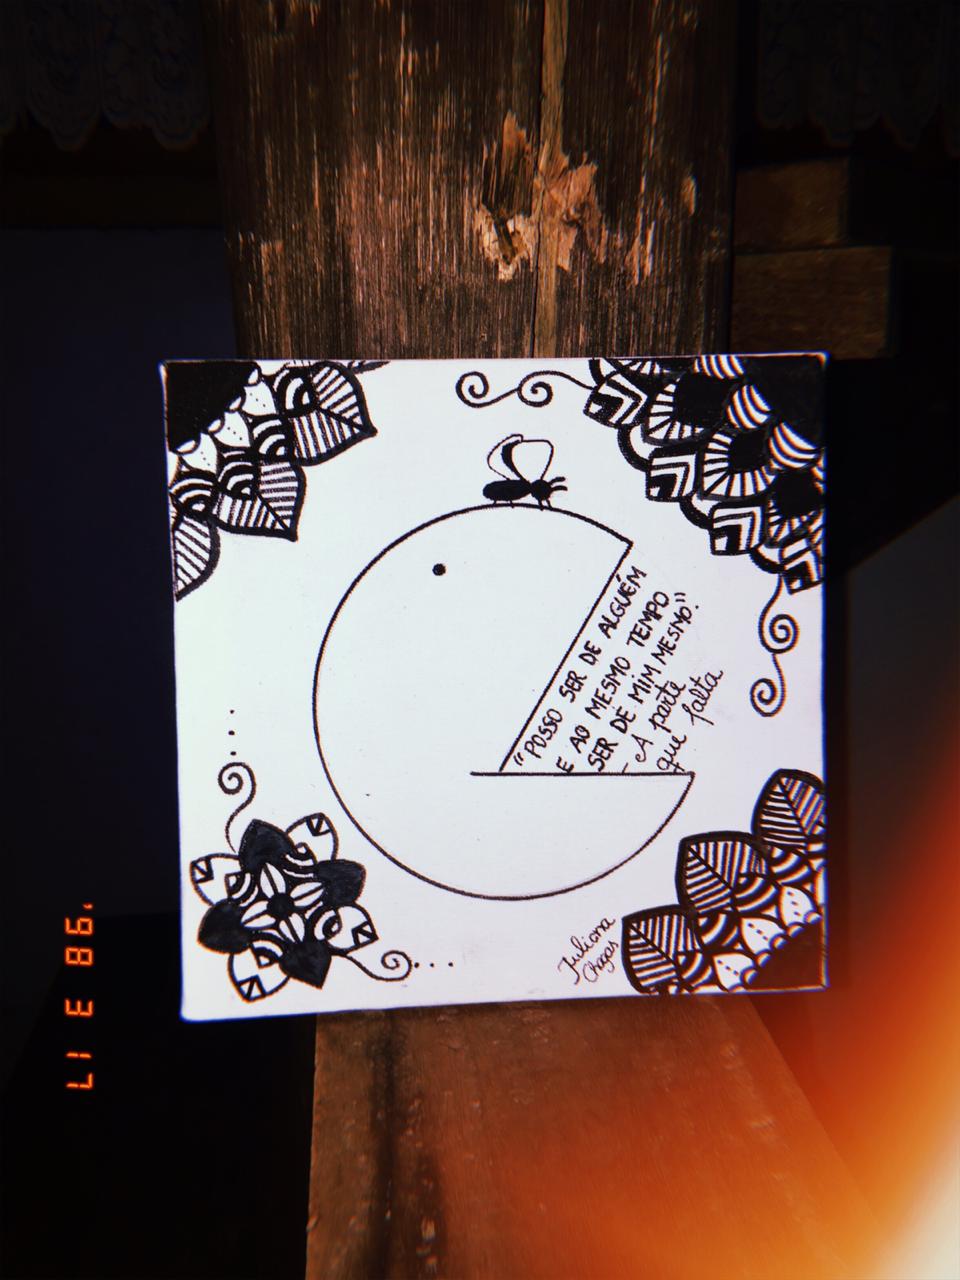 "POSSO SER DE ALGUÉM
E AO MESMO TEMPO
SER DE MIM MESMO".
- A parte
que falta
Juliana
Chagas
'98 3 17